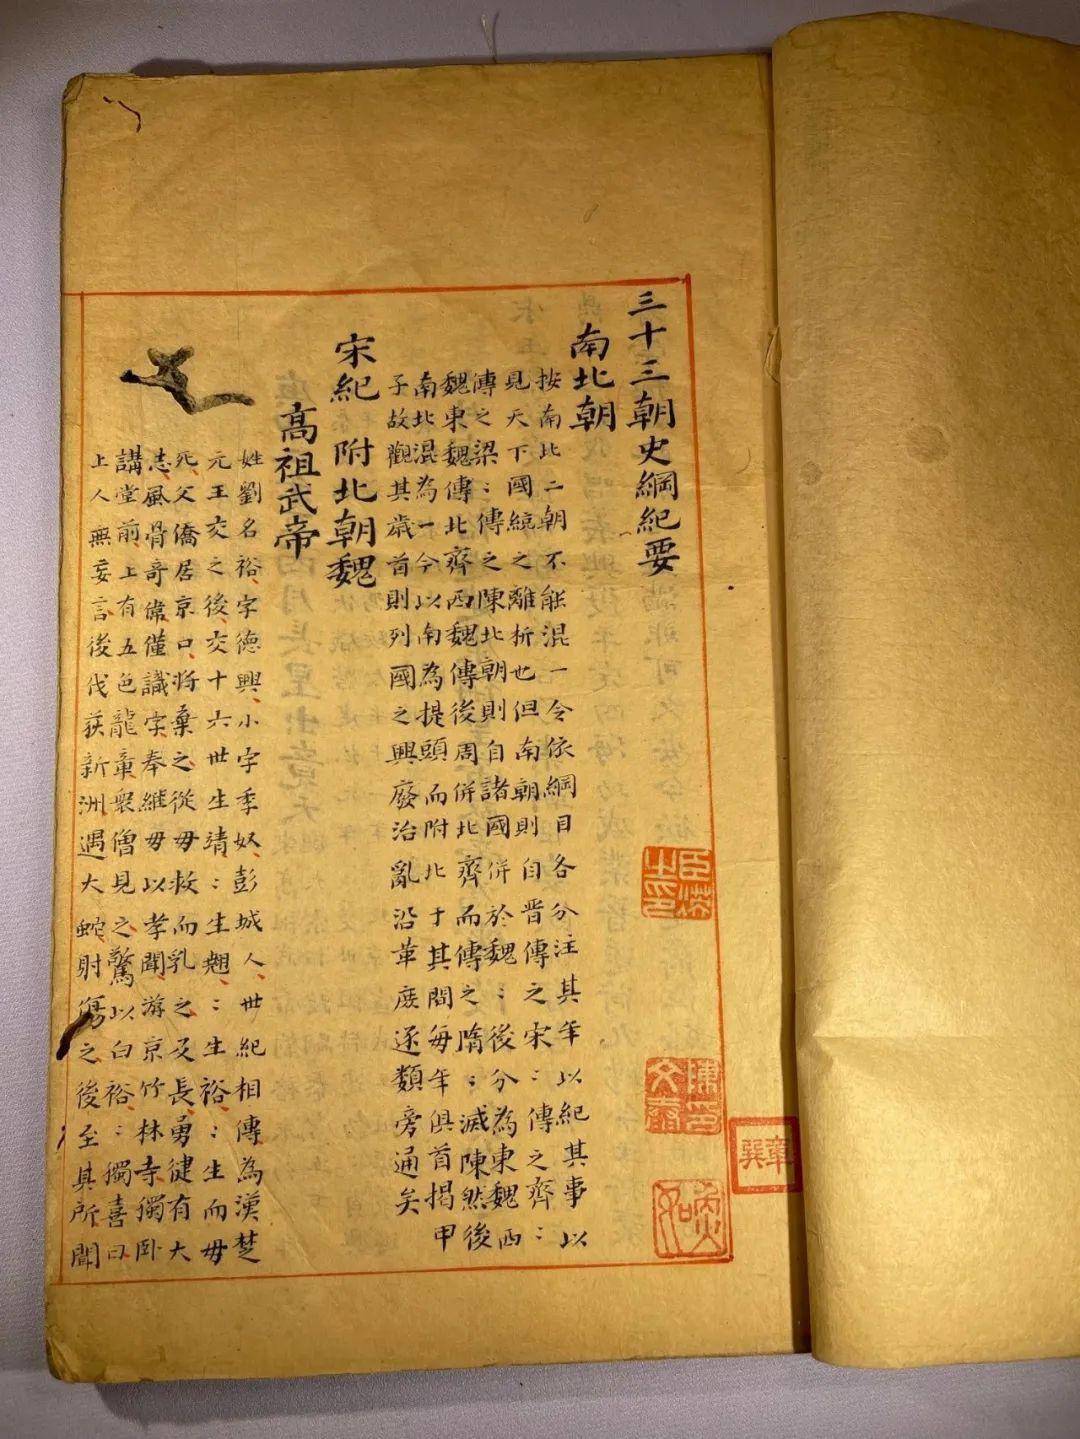 三十三朝史綱紀要
南北朝
按南北二朝不能混一今依綱目各分注其年以紀其事以
見天下國統之離析也但南朝則自晋傳之宋〻傳之齊〻
傳之梁〻傳之陳北朝則自諸國併於魏〻後分為東魏西
魏東魏傳北齊西魏傳後周併北齊而傳之隋〻滅陳然後
南北混為一今以南為提頭而附北于其間每年俱首揭甲
子故觀其歲首則列國之興廢治亂沿革庶逐類旁通矣
宋紀 附北朝魏
高祖武帝
姓劉名裕字德興小字季奴彭城人世紀相傳為漢楚
元王交之後交十六世生靖〻生翹〻生裕〻生而母
死父僑居京口將棄之從母救而乳之及長勇健有大
志風骨奇偉僅識字奉継母以孝聞游京竹林寺獨卧
講堂前上有五色龍章衆僧見之驚以白裕〻獨喜曰
上人無妄言後伐荻新洲遇大蛇射傷之後至其所聞
臣滎之印
章巽